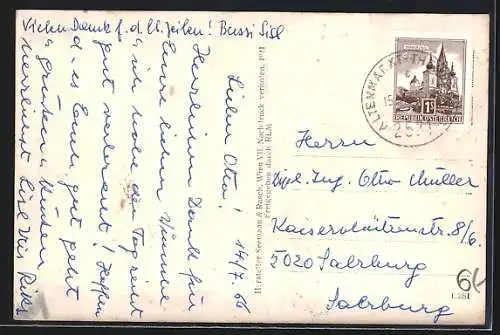 Vielen Dank f. d. lb. Zeilen! Bussi Lisl
Lieber Otto! 14/7. 66
Herzlichen Dank für
Eure lieben Wünsche
ich habe den Tag recht
gut verbracht! Hoffen
d. es Euch gut geht
grüßen u. küssen
herzlichst Lisl
Hersteller Seemann & Rasch, Wien VII. Nachdruck verboten.
Freigegeben durch BLM
MARIAZELL
1S
REPUBLIK ÖSTERREICH
ALTENMARKT
Herrn
Dipl. Ing. Otto Müller
8/6.
5020 Salzburg
Salzburg
6,-